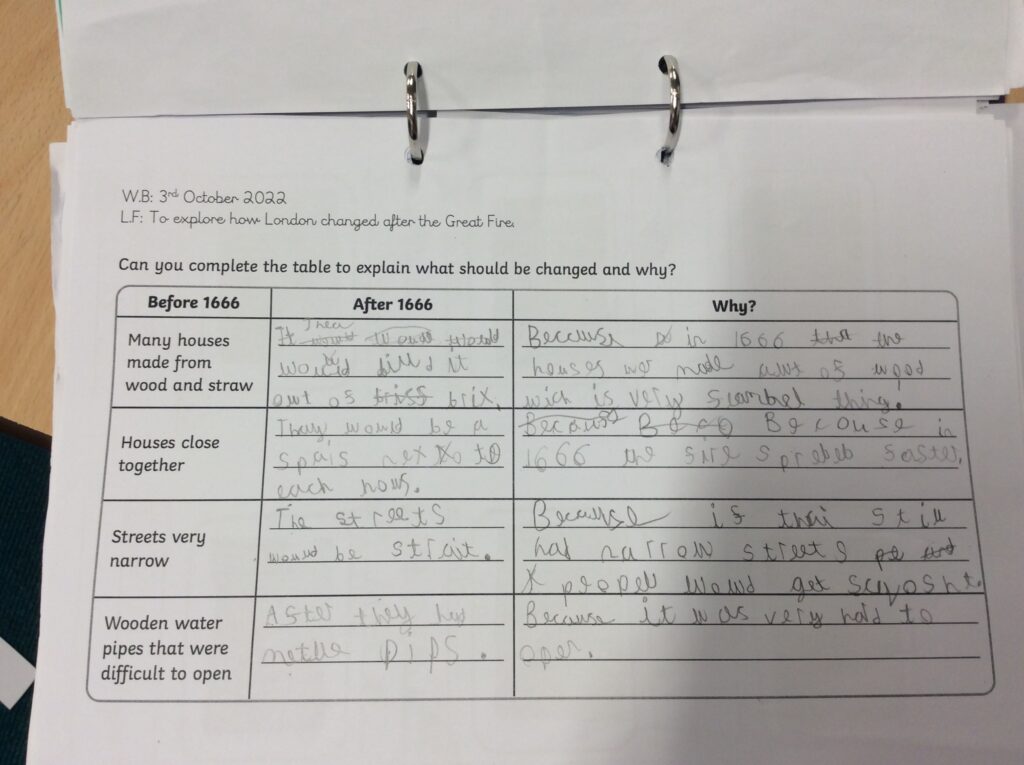 W.B: 3rd October 2022
L.F: To explore how London changed after the Great Fire.
Can you complete the table to explain what should be changed and why?
Before 1666
After 1666
Why?
Many houses
made from
wood and straw
It
would billd it
out of brix.
Because in 1666 the
houses wer made awt of wood
wich is very flambel thing.
Houses close
together
Thay would be a
spais next to
each hows.
Because Because in
1666 the fire spreded faster.
Streets very
narrow
The streets
would be strait.
Because if thai still
had narrow streets
propel would get sqosht.
Wooden water
pipes that were
difficult to open
After they had
pips.
Because it was very hard to
open.